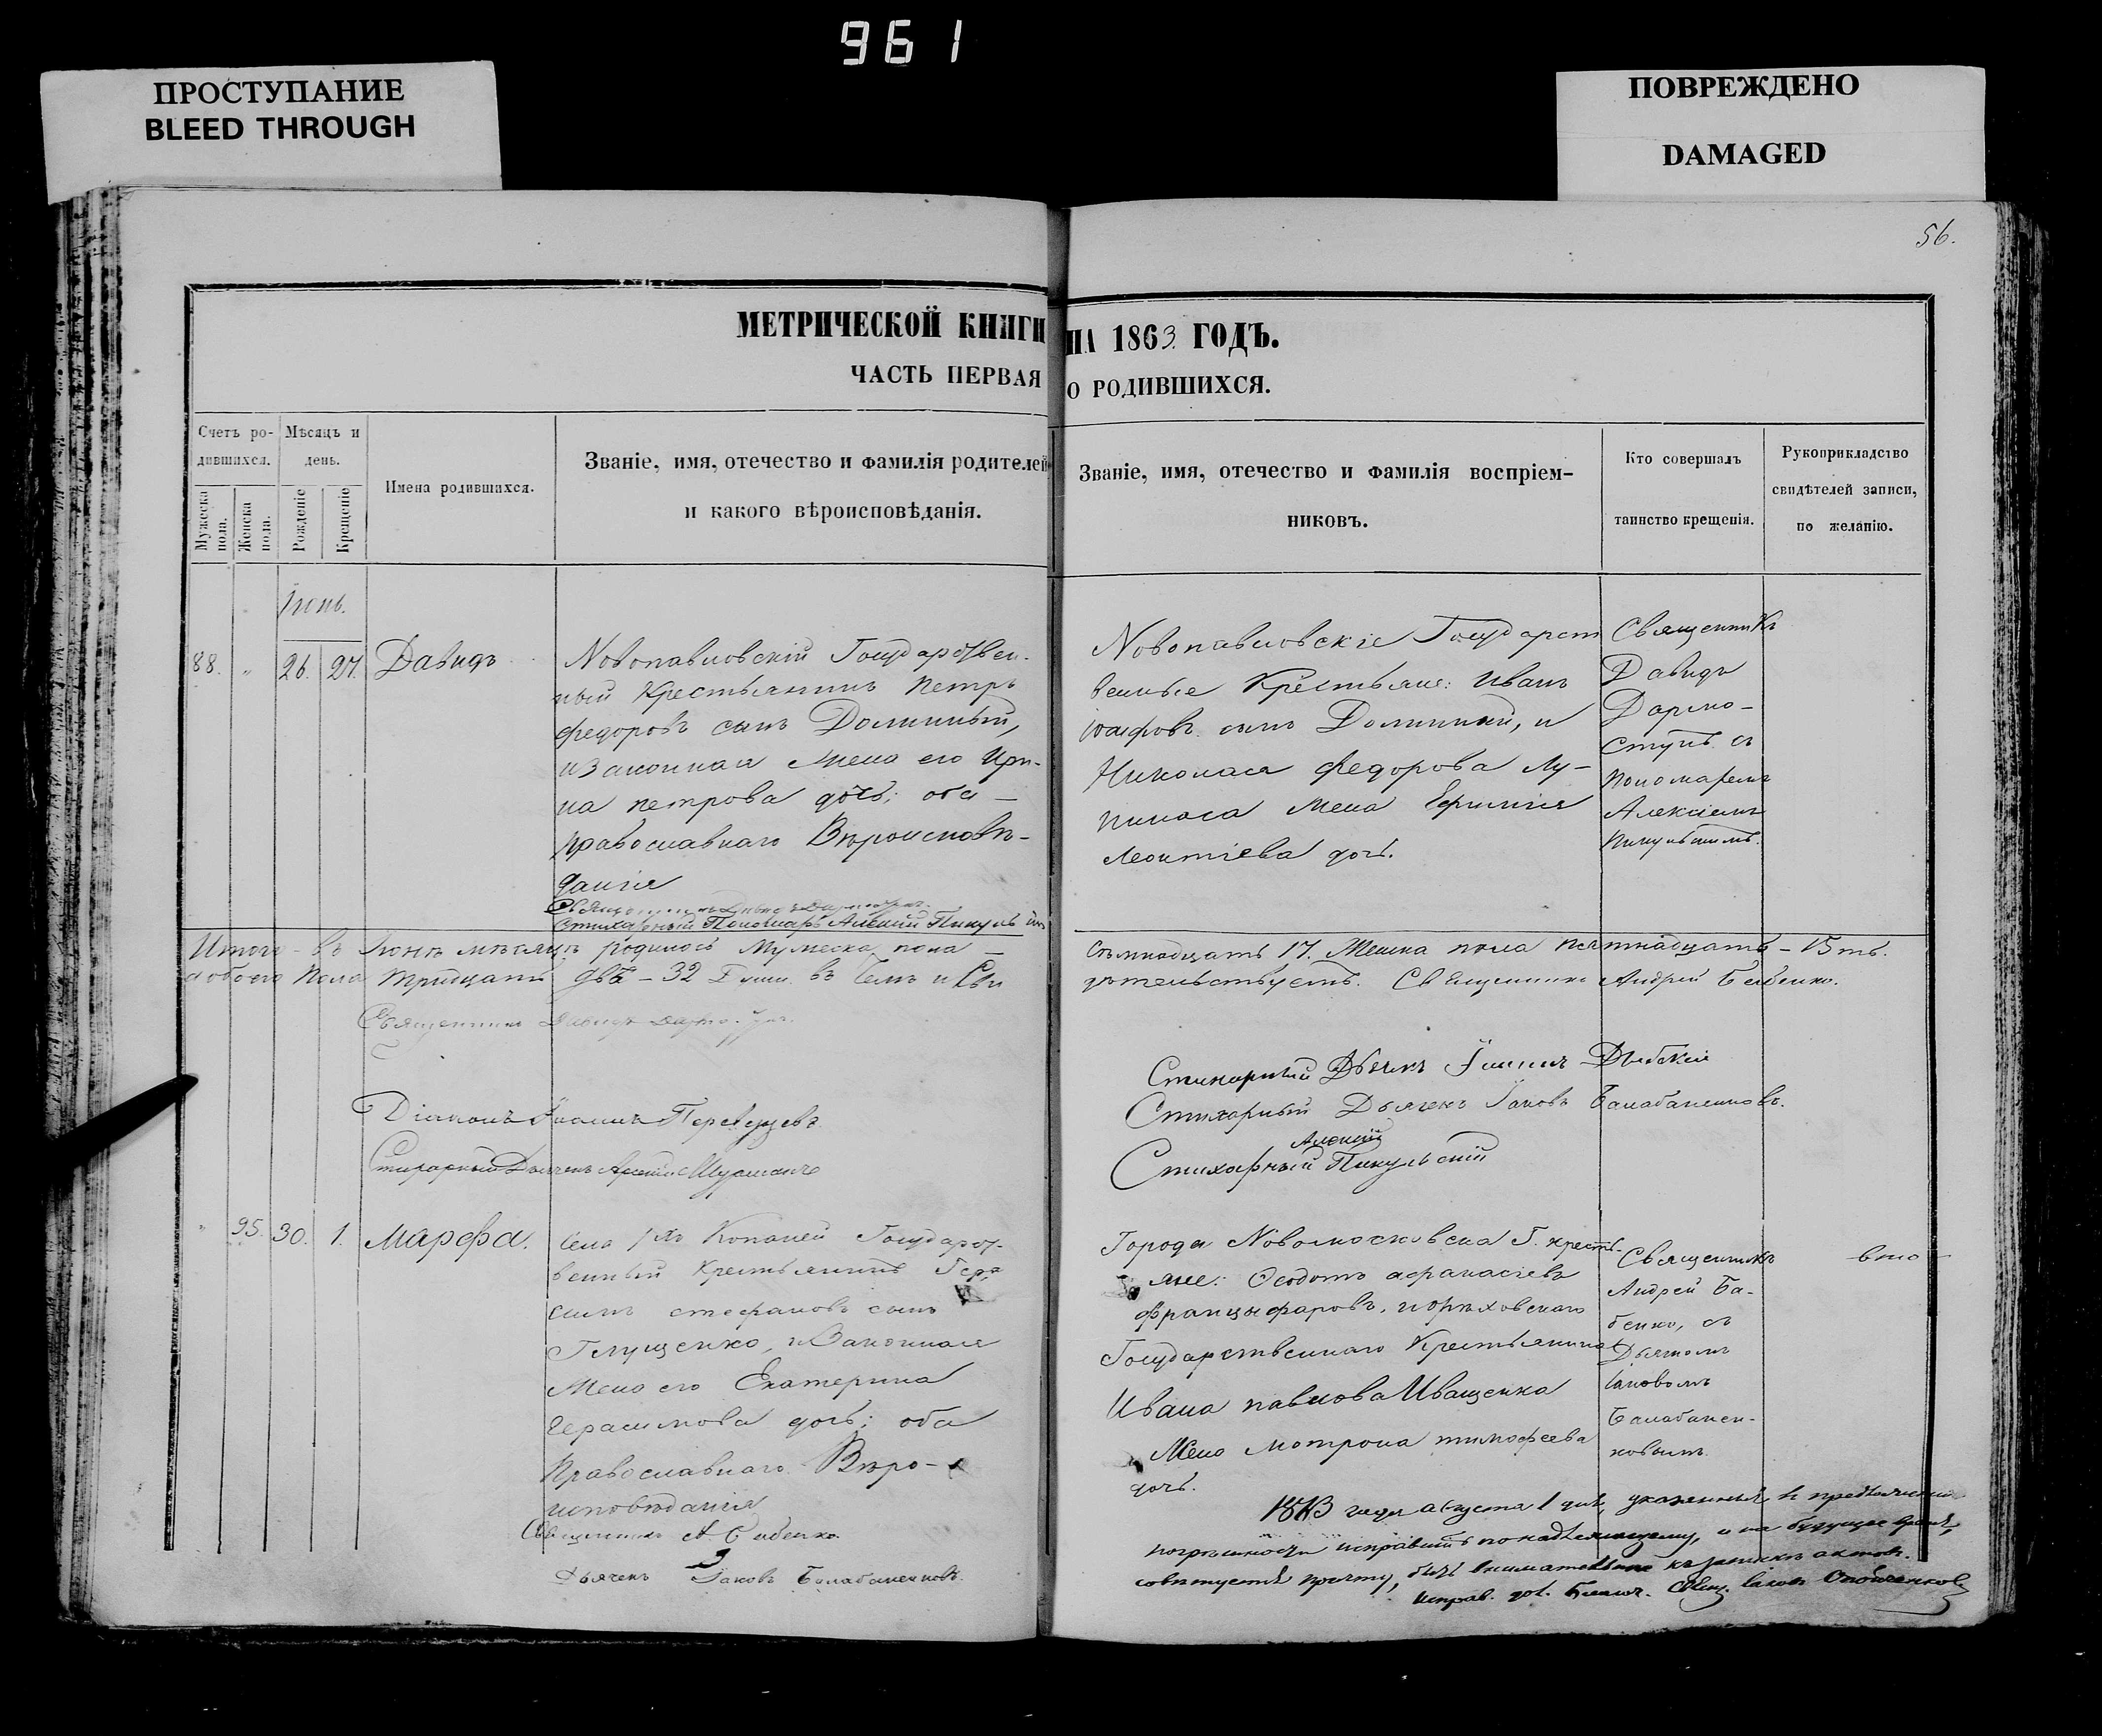 961
ПРОСТУПАНИЕ
BLEED THROUGH
ПОВРЕЖДЕНО
DAMAGED
56.
МЕТРИЧЕСКОЙ КНИГИ НА 1863 ГОДЪ.
ЧАСТЬ ПЕРВАЯ О РОДИВШИХСЯ.
Счетъ ро-
дившихся.
Мужеска пола.
Женска пола.
Мѣсяцъ и
день.
Рожденіе
Крещеніе
Имена родившихся.
Званіе, имя, отечество и фамилія родителей
и какого вѣроисповѣданія.
Званіе, имя, отечество и фамилія воспріем-
никовъ.
Кто совершалъ
таинство крещенія.
Рукоприкладство
свидѣтелей записи,
по желанію.
Іюнь.
88. " 26. 27. Давидъ
Новопавловскій Государствен-
ный Крестьянинъ Петръ
федоровъ сынъ Долинный,
и законная жена его Ири-
на петрова дочь; оба
православнаго Вѣроисповѣ-
данія
Стихарный Пономарь Алексій Пикульскій
Новопавловскіе Государст
венные Крестьяне: Иванъ
сынъ Долинный, и
Николая федорова Лу-
жена Ефимія
Леонтіева дочь.
Священникъ
Давидъ
Дармо-
стукъ съ
пономаремъ
Алексіемъ
Пикульскимъ.
Итого - въ Іюнѣ мѣсяцѣ родилось Мужеска пола
Семнадцать 17. Женска пола пятнадцать - 15ть.
а обоего пола тридцать двѣ - 32 Души. въ чемъ и Сви
дѣтельствуетъ. Священникъ Андрей Бабенко.
Священникъ Давидъ
Діаконъ Іоаннъ Переверзевъ
Стихарный Дьячекъ
Стихарный Дьячекъ Іоаннъ
Стихарный Дьячекъ Іаковъ Балабаненковъ.
Алексій
Стихарный Пикульскій
" 95. 30. 1. Марфа.
Села Копаней Государст-
венный Крестьянинъ Гера
симъ стефановъ сынъ
Глущенко, и Законная
Жена его Екатерина
Герасимова дочь; оба
Православнаго Вѣро-
исповѣданія
Священникъ А. Бабенко.
Дьячекъ Іаковъ Балабаненковъ.
Города Новомосковска Г. кресть-
яне: Ѳеодотъ афанасіевъ
и орѣховскаго
Государственнаго Крестьянина
Ивана павлова Иващенка
Жена мотрона тимофеева
дочь.
Священникъ
Андрей Ба-
бенко, съ
Дьячкомъ
Іаковомъ
Балабанен-
ковымъ.
года августа 1 дня, указанныя въ
погрѣшности исправить по надлежащему, и на будущее время
совѣтуется причту, быть внимательнѣе къ записи актовъ.
Свящ. Іаковъ